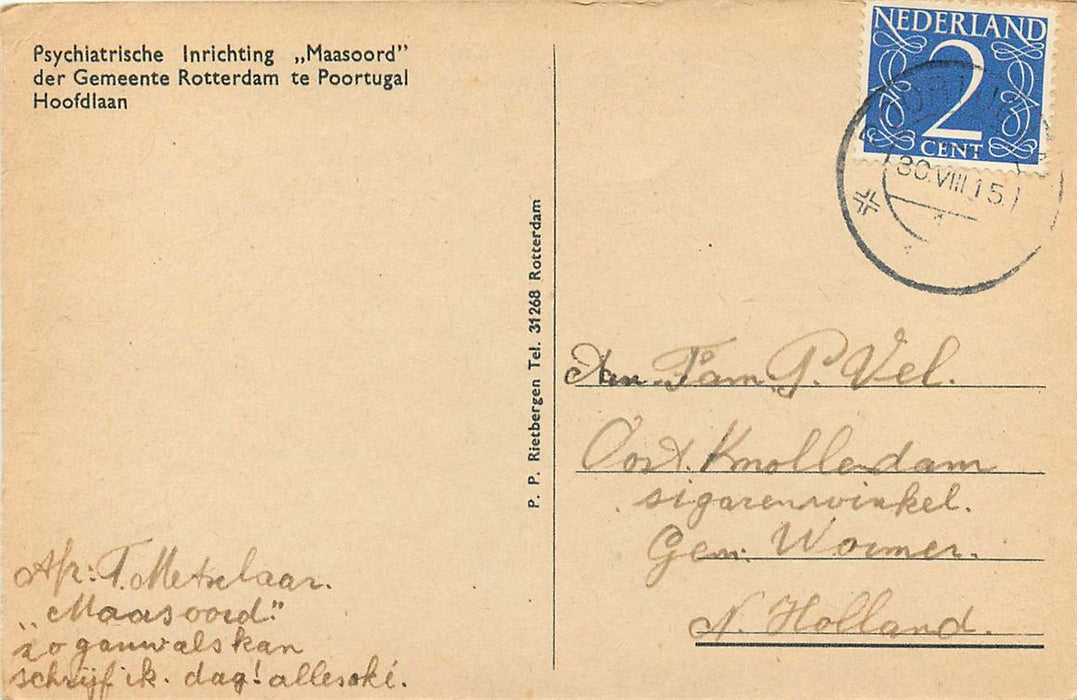 Psychiatrische Inrichting „Maasoord”
der Gemeente Rotterdam te Poortugal
Hoofdlaan
NEDERLAND
2
CENT
30.VIII.15
P. P. Rietbergen Tel. 31268 Rotterdam
Aan Fam. P. Vel.
Oost. Knollendam
sigarenwinkel.
Gem. Wormer.
N. Holland.
Afz: T. Metselaar.
„Maasoord."
zo gauw als kan
schrijf ik. dag! alles oké.